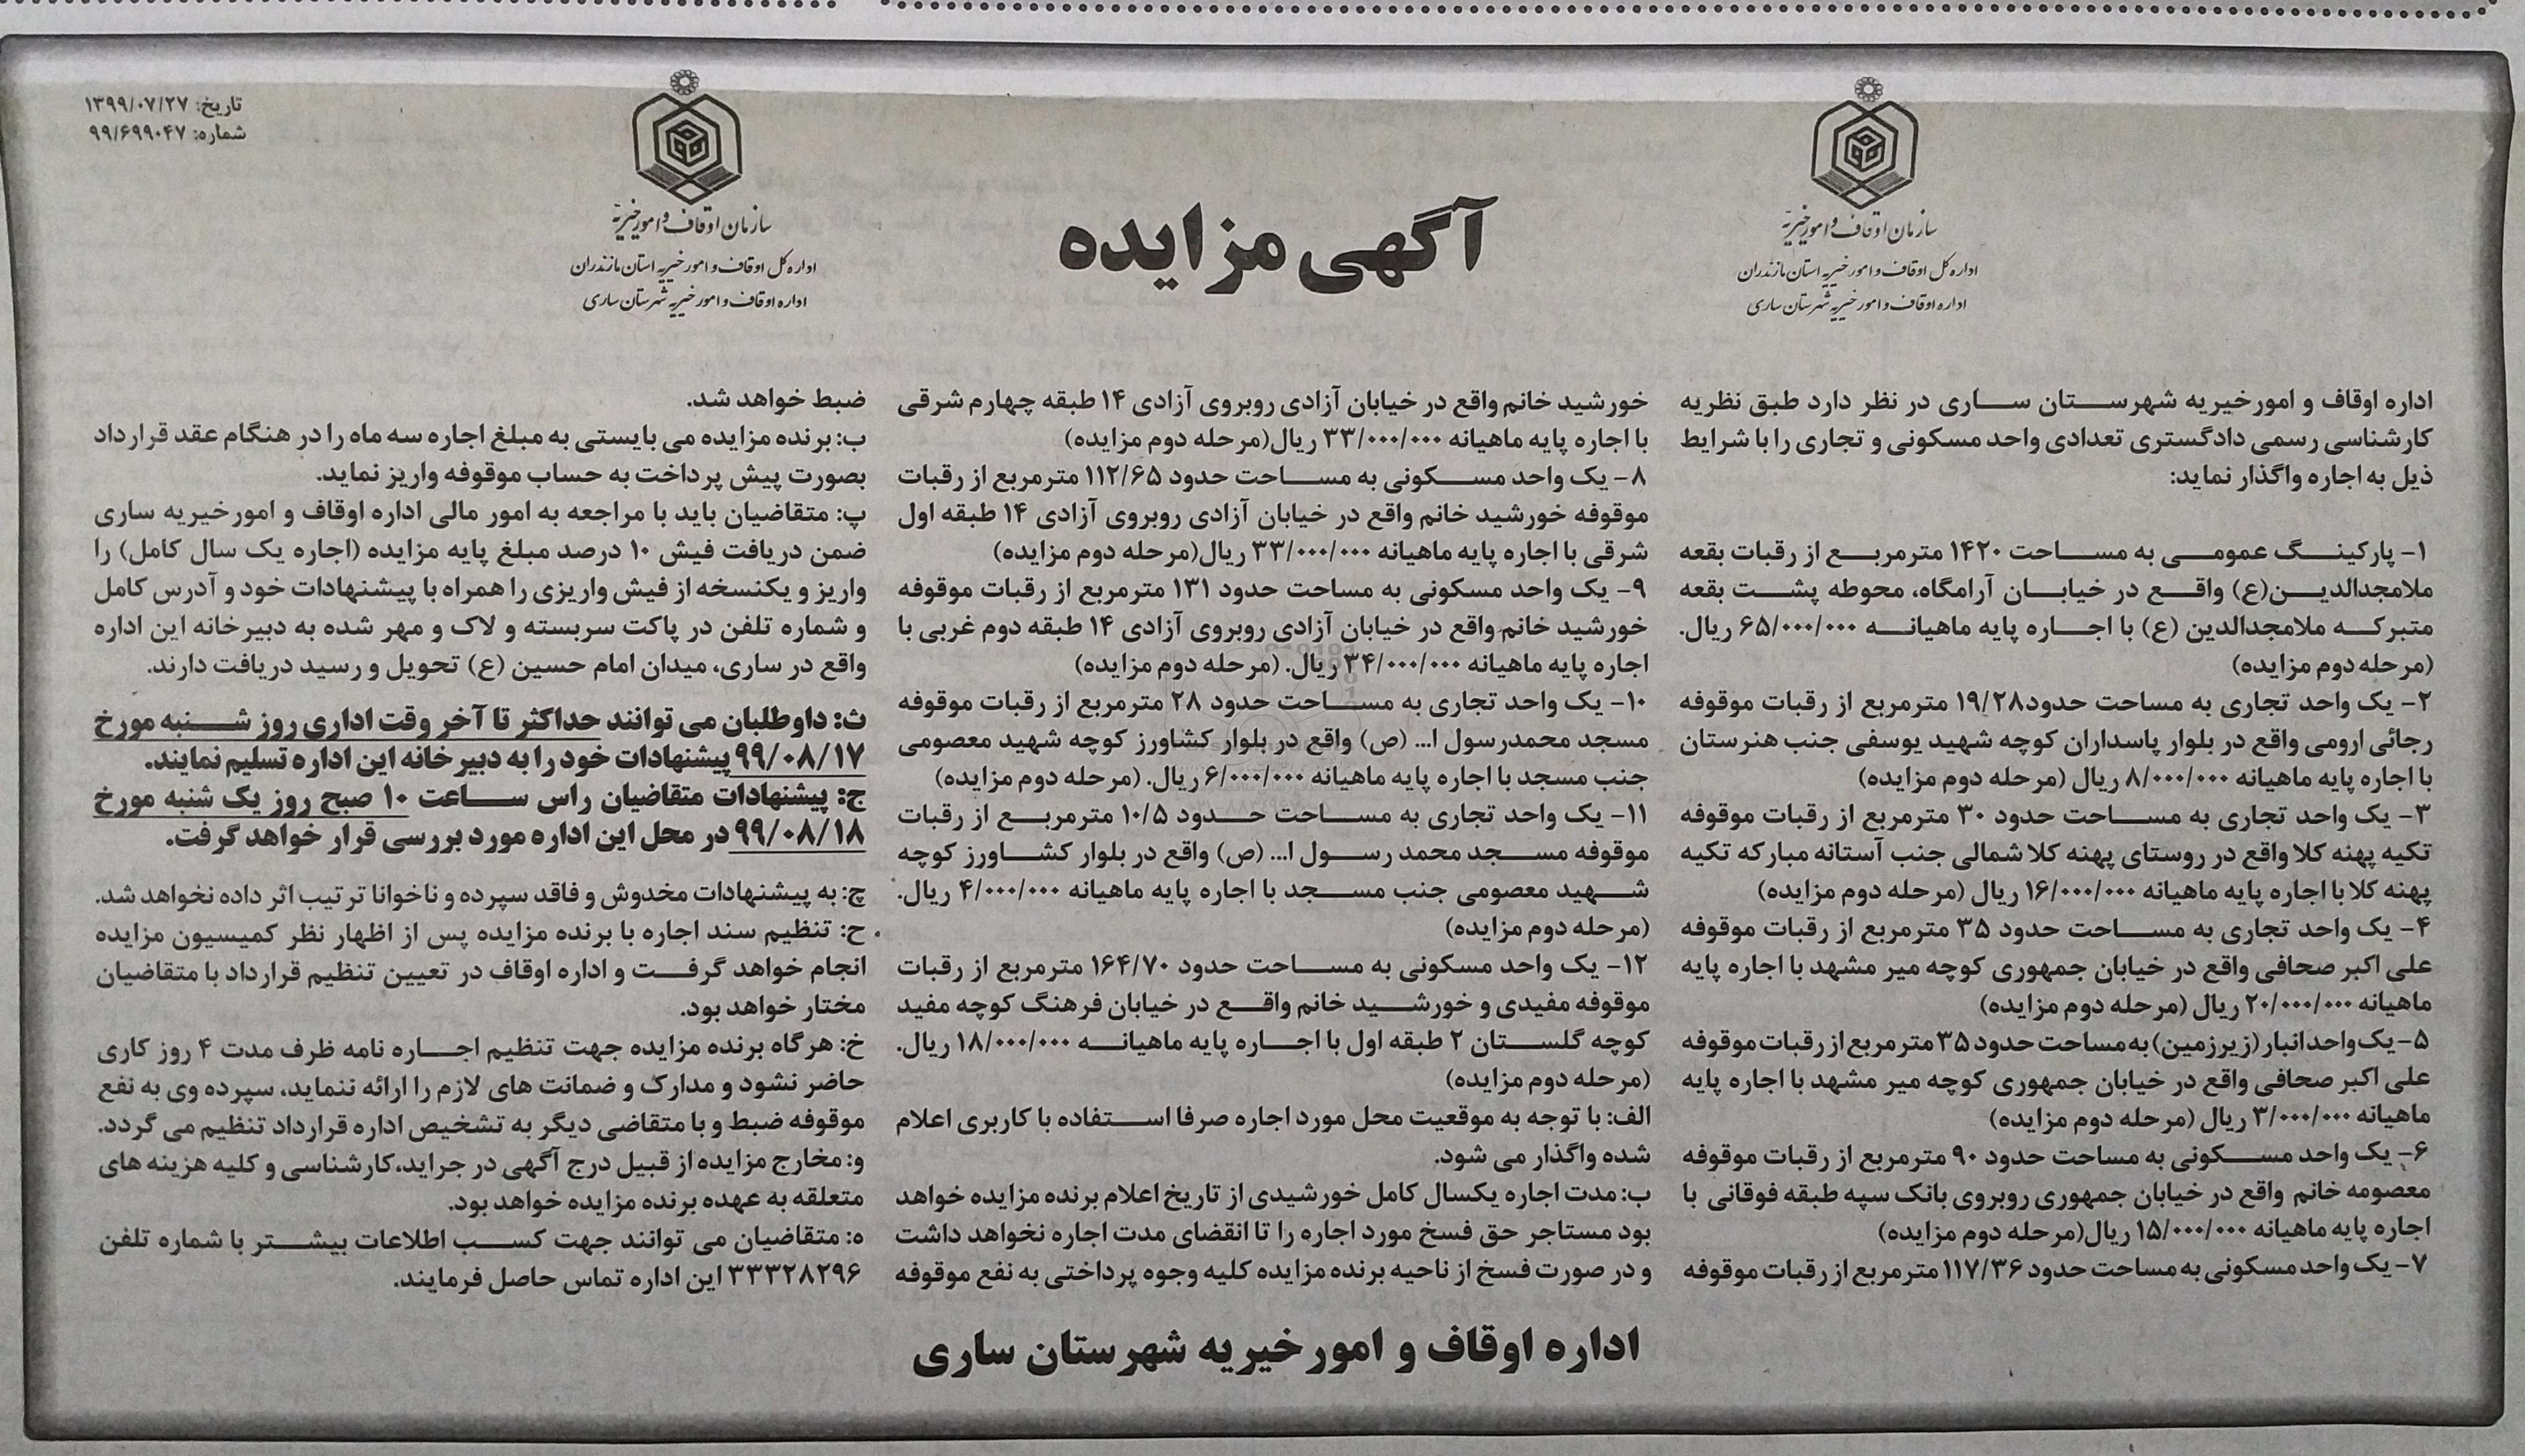 تاریخ: ۱۳۹۹/۰۷/۲۷
شماره: ۹۹/۶۹۹۰۴۷
سازمان اوقاف و امور خیریه
اداره کل اوقاف و امور خیریه استان مازندران
اداره اوقاف و امور خیریه شهرستان ساری
آگهی مزایده
سازمان اوقاف و امور خیریه
اداره کل اوقاف و امور خیریه استان مازندران
اداره اوقاف و امور خیریه شهرستان ساری
اداره اوقاف و امور خیریه شهرستان ساری در نظر دارد طبق نظریه
کارشناسی رسمی دادگستری تعدادی واحد مسکونی و تجاری را با شرایط
ذیل به اجاره واگذار نماید:
۱- پارکینگ عمومی به مساحت ۱۴۲۰ مترمربع از رقبات بقعه
ملامجدالدین(ع) واقع در خیابان آرامگاه، محوطه پشت بقعه
متبرکه ملامجدالدین (ع) با اجاره پایه ماهیانه ۶۵/۰۰۰/۰۰۰ ریال.
(مرحله دوم مزایده)
۲- یک واحد تجاری به مساحت حدود۱۹/۲۸ مترمربع از رقبات موقوفه
رجائی ارومی واقع در بلوار پاسداران کوچه شهید یوسفی جنب هنرستان
با اجاره پایه ماهیانه ۸/۰۰۰/۰۰۰ ریال (مرحله دوم مزایده)
۳- یک واحد تجاری به مساحت حدود ۳۰ مترمربع از رقبات موقوفه
تکیه پهنه کلا واقع در روستای پهنه کلا شمالی جنب آستانه مبارکه تکیه
پهنه کلا با اجاره پایه ماهیانه ۱۶/۰۰۰/۰۰۰ ریال (مرحله دوم مزایده)
۴- یک واحد تجاری به مساحت حدود ۳۵ مترمربع از رقبات موقوفه
علی اکبر صحافی واقع در خیابان جمهوری کوچه میر مشهد با اجاره پایه
ماهیانه ۲۰/۰۰۰/۰۰۰ ریال (مرحله دوم مزایده)
۵- یک واحد انبار (زیرزمین) به مساحت حدود ۳۵ مترمربع از رقبات موقوفه
علی اکبر صحافی واقع در خیابان جمهوری کوچه میر مشهد با اجاره پایه
ماهیانه ۳/۰۰۰/۰۰۰ ریال (مرحله دوم مزایده)
۶- یک واحد مسکونی به مساحت حدود ۹۰ مترمربع از رقبات موقوفه
معصومه خانم واقع در خیابان جمهوری روبروی بانک سپه طبقه فوقانی با
اجاره پایه ماهیانه ۱۵/۰۰۰/۰۰۰ ریال(مرحله دوم مزایده)
۷- یک واحد مسکونی به مساحت حدود ۱۱۷/۳۶ مترمربع از رقبات موقوفه
خورشید خانم واقع در خیابان آزادی روبروی آزادی ۱۴ طبقه چهارم شرقی
با اجاره پایه ماهیانه ۳۳/۰۰۰/۰۰۰ ریال(مرحله دوم مزایده)
۸- یک واحد مسکونی به مساحت حدود ۱۱۲/۶۵ مترمربع از رقبات
موقوفه خورشید خانم واقع در خیابان آزادی روبروی آزادی ۱۴ طبقه اول
شرقی با اجاره پایه ماهیانه ۳۳/۰۰۰/۰۰۰ ریال(مرحله دوم مزایده)
۹- یک واحد مسکونی به مساحت حدود ۱۳۱ مترمربع از رقبات موقوفه
خورشید خانم واقع در خیابان آزادی روبروی آزادی ۱۴ طبقه دوم غربی با
اجاره پایه ماهیانه ۳۴/۰۰۰/۰۰۰ ریال. (مرحله دوم مزایده)
۱۰- یک واحد تجاری به مساحت حدود ۲۸ مترمربع از رقبات موقوفه
مسجد محمدرسول ا... (ص) واقع در بلوار کشاورز کوچه شهید معصومی
جنب مسجد با اجاره پایه ماهیانه ۶/۰۰۰/۰۰۰ ریال. (مرحله دوم مزایده)
۱۱- یک واحد تجاری به مساحت حدود ۱۰/۵ مترمربع از رقبات
موقوفه مسجد محمد رسول ا... (ص) واقع در بلوار کشاورز کوچه
شهید معصومی جنب مسجد با اجاره پایه ماهیانه ۴/۰۰۰/۰۰۰ ریال.
(مرحله دوم مزایده)
۱۲- یک واحد مسکونی به مساحت حدود ۱۶۴/۷۰ مترمربع از رقبات
موقوفه مفیدی و خورشید خانم واقع در خیابان فرهنگ کوچه مفید
کوچه گلستان ۲ طبقه اول با اجاره پایه ماهیانه ۱۸/۰۰۰/۰۰۰ ریال.
(مرحله دوم مزایده)
الف: با توجه به موقعیت محل مورد اجاره صرفا استفاده با کاربری اعلام
شده واگذار می شود.
ب: مدت اجاره یکسال کامل خورشیدی از تاریخ اعلام برنده مزایده خواهد
بود مستاجر حق فسخ مورد اجاره را تا انقضای مدت اجاره نخواهد داشت
و در صورت فسخ از ناحیه برنده مزایده کلیه وجوه پرداختی به نفع موقوفه
ضبط خواهد شد.
ب: برنده مزایده می بایستی به مبلغ اجاره سه ماه را در هنگام عقد قرارداد
بصورت پیش پرداخت به حساب موقوفه واریز نماید.
پ: متقاضیان باید با مراجعه به امور مالی اداره اوقاف و امور خیریه ساری
ضمن دریافت فیش ۱۰ درصد مبلغ پایه مزایده (اجاره یک سال کامل) را
واریز و یکنسخه از فیش واریزی را همراه با پیشنهادات خود و آدرس کامل
و شماره تلفن در پاکت سربسته و لاک و مهر شده به دبیرخانه این اداره
واقع در ساری، میدان امام حسین (ع) تحویل و رسید دریافت دارند.
ث: داوطلبان می توانند حداکثر تا آخر وقت اداری روز شنبه مورخ
۹۹/۰۸/۱۷ پیشنهادات خود را به دبیرخانه این اداره تسلیم نمایند.
ج: پیشنهادات متقاضیان راس ساعت ۱۰ صبح روز یک شنبه مورخ
۹۹/۰۸/۱۸ در محل این اداره مورد بررسی قرار خواهد گرفت.
چ: به پیشنهادات مخدوش و فاقد سپرده و ناخوانا ترتیب اثر داده نخواهد شد.
ح: تنظیم سند اجاره با برنده مزایده پس از اظهار نظر کمیسیون مزایده
انجام خواهد گرفت و اداره اوقاف در تعیین تنظیم قرارداد با متقاضیان
مختار خواهد بود.
خ: هرگاه برنده مزایده جهت تنظیم اجاره نامه ظرف مدت ۴ روز کاری
حاضر نشود و مدارک و ضمانت های لازم را ارائه ننماید، سپرده وی به نفع
موقوفه ضبط و با متقاضی دیگر به تشخیص اداره قرارداد تنظیم می گردد.
و: مخارج مزایده از قبیل درج آگهی در جراید،کارشناسی و کلیه هزینه های
متعلقه به عهده برنده مزایده خواهد بود.
ه: متقاضیان می توانند جهت کسب اطلاعات بیشتر با شماره تلفن
۳۳۳۲۸۲۹۶ این اداره تماس حاصل فرمایند.
اداره اوقاف و امور خیریه شهرستان ساری